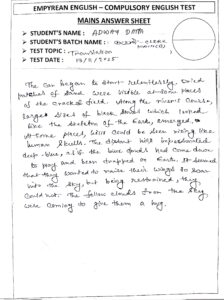 EMPYREAN ENGLISH – COMPULSORY ENGLISH TEST
MAINS ANSWER SHEET
STUDENT'S NAME : ADWAY DATTA
STUDENT'S BATCH NAME :
TEST TOPIC : Translation
TEST DATE :
The sun began to shine relentlessly. Dried
patches of were visible at some places
of the cracked field. Along the river's course,
large of black that looked
like the skeleton of the Earth, emerged.
At some places, could be seen rising like
human skulls. The distant hills
deep-blue, as if the blue clouds had come down
to pray and been trapped on Earth. It seemed
that they wanted to raise their wings to soar
into the sky, but being restrained, they
could not. The fellow clouds from the sky
were coming to give them a hug.